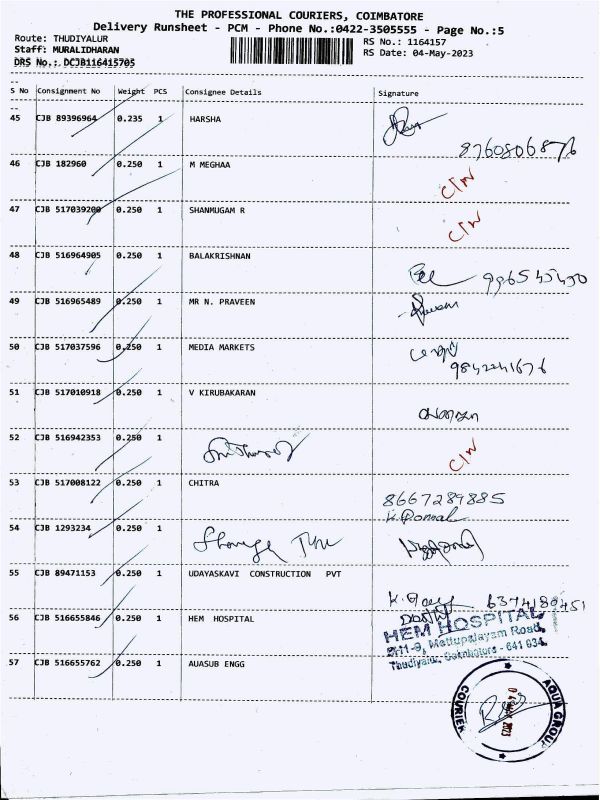 THE PROFESSIONAL COURIERS, COIMBATORE
Delivery Runsheet - PCM - Phone No.:0422-3505555 - Page No.:5
Route: THUDIYALUR
Staff: MURALIDHARAN
DRS No.: DCJB116415705
RS No.: 1164157
RS Date: 04-May-2023
S No Consignment No Weight PCS Consignee Details Signature
45 CJB 89396964 0.235 1 HARSHA
8760806876
46 CJB 182960 0.250 1 M MEGHAA C/N
47 CJB 517039200 0.250 1 SHANMUGAM R C/N
48 CJB 516964905 0.250 1 BALAKRISHNAN
49 CJB 516965489 0.250 1 MR N. PRAVEEN
50 CJB 517037596 0.250 1 MEDIA MARKETS
51 CJB 517010918 0.250 1 V KIRUBAKARAN
52 CJB 516942353 0.250 1 C/N
53 CJB 517008122 0.250 1 CHITRA
8667289885
54 CJB 1293234 0.250 1
55 CJB 89471153 0.250 1 UDAYASKAVI CONSTRUCTION PVT
6374180451
56 CJB 516655846 0.250 1 HEM HOSPITAL
HEM HOSPITAL
Mettupalayam Road,
Thudiyalur, Coimbatore - 641 034.
57 CJB 516655762 0.250 1 AUASUB ENGG
AQUA GROUP
COURIER